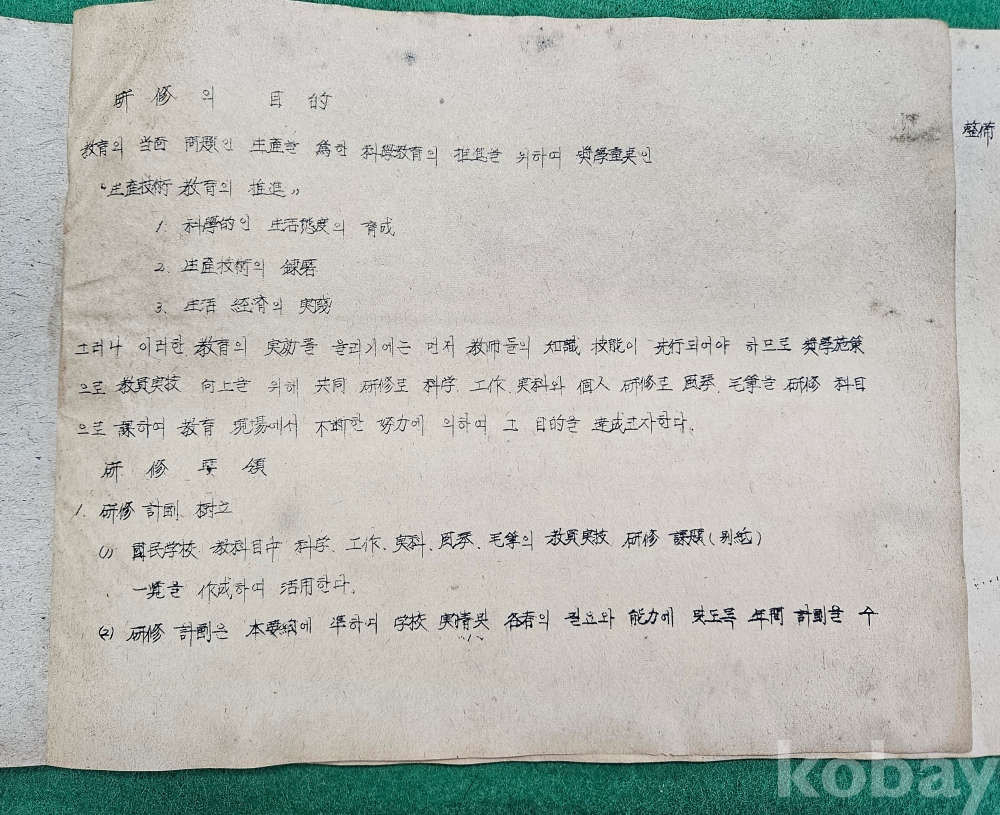 研修의 目的
教育의 当面 問題인 生産을 爲한 科學教育의 推進을 위하여 奬學重点인
“生産技術 教育의 推進”
1. 科學的인 生活態度의 育成
2. 生産技術의 錬磨
3. 生活 経済의 実践
그러나 이러한 教育의 実効를 올리기에는 먼저 教師들의 知識 技能이 先行되어야 하므로 奬學施策
으로 教員実技 向上을 위해 共同 研修로 科学、工作、実科와 個人 研修로 風琴、毛筆을 研修 科目
으로 課하여 教育 現場에서 不断한 努力에 의하여 그 目的을 達成코자한다.
研修要領
1. 研修 計劃 樹立
(1) 國民学校 教科目中 科学、工作、実科、風琴、毛筆의 教員実技 研修 課題(別紙)
一覧을 作成하여 活用한다.
(2) 研修 計劃은 本要綱에 準하여 学校 実情및 各者의 필요와 能力에 맞도록 年間 計劃을 수
整備
kobay